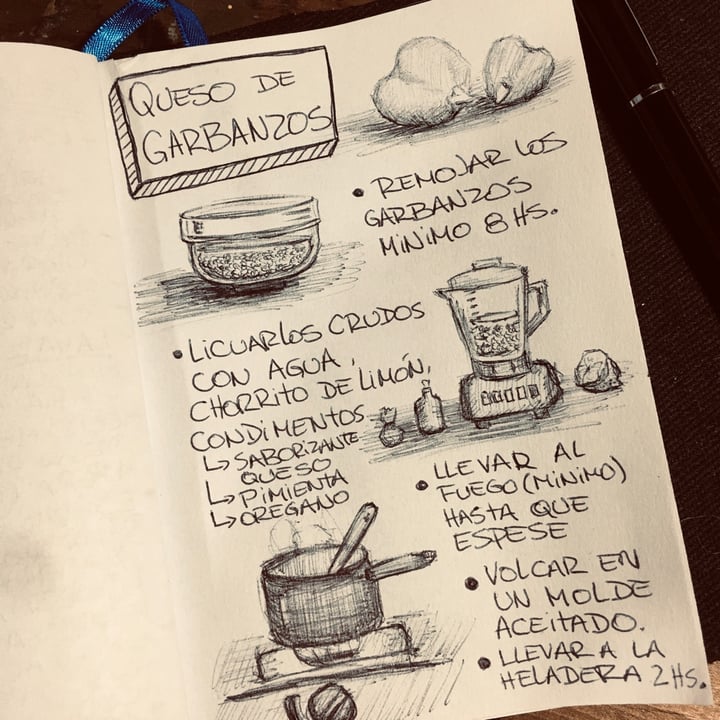 QUESO DE
GARBANZOS
• REMOJAR LOS
GARBANZOS
MINIMO 8 HS.
• LICUARLOS CRUDOS
CON AGUA,
CHORRITO DE LIMÓN,
CONDIMENTOS
↳ SABORIZANTE
QUESO
↳ PIMIENTA
↳ OREGANO
• LLEVAR AL
FUEGO (MINIMO)
HASTA QUE
ESPESE
• VOLCAR EN
UN MOLDE
ACEITADO.
• LLEVAR A LA
HELADERA 2 HS.